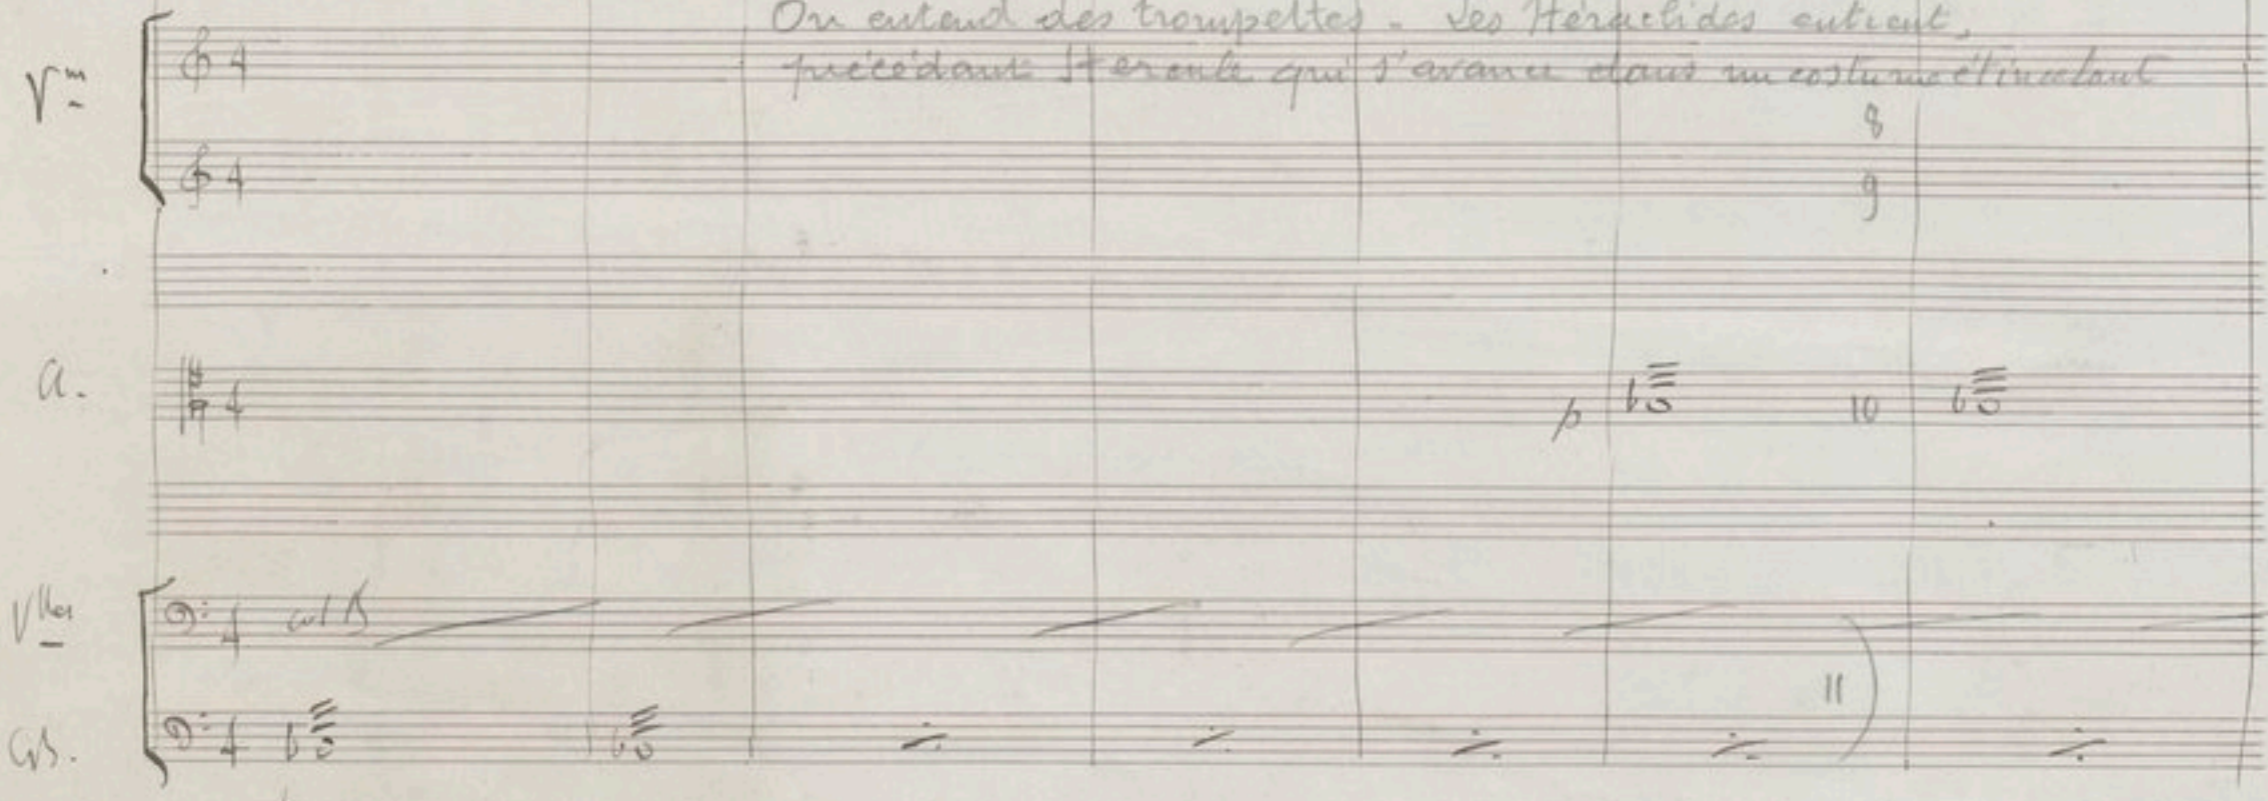 On entend des trompettes - Les Héraclides entrent,
précédant Hercule qui s'avance dans un costume étincelant
Vns
4
8
4
9
A.
4
p
10
Vlles
4
col B
11
CB.
4